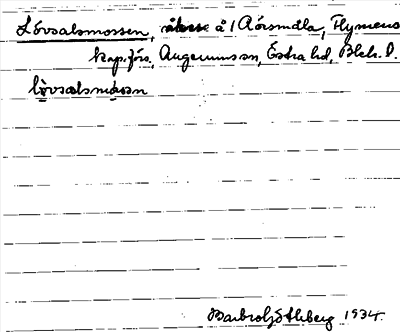 Lövsalsmossen, åker å 1 Rörsmåla, Flymens
kap.förs., Augerums sn, Östra hd, Blek. l.
lövsalsmåsen
Barbro Ljz Ahlberg 1934.